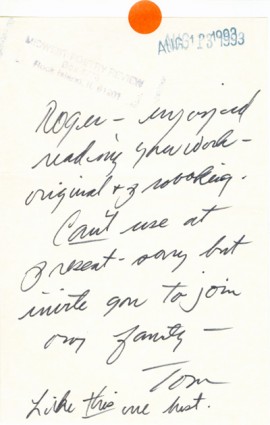 AUG 13 1993
Roger - enjoyed
reading your work -
original & provoking.
Can't use at
present - sorry but
invite you to join
our family -
Tom
Like this one best.